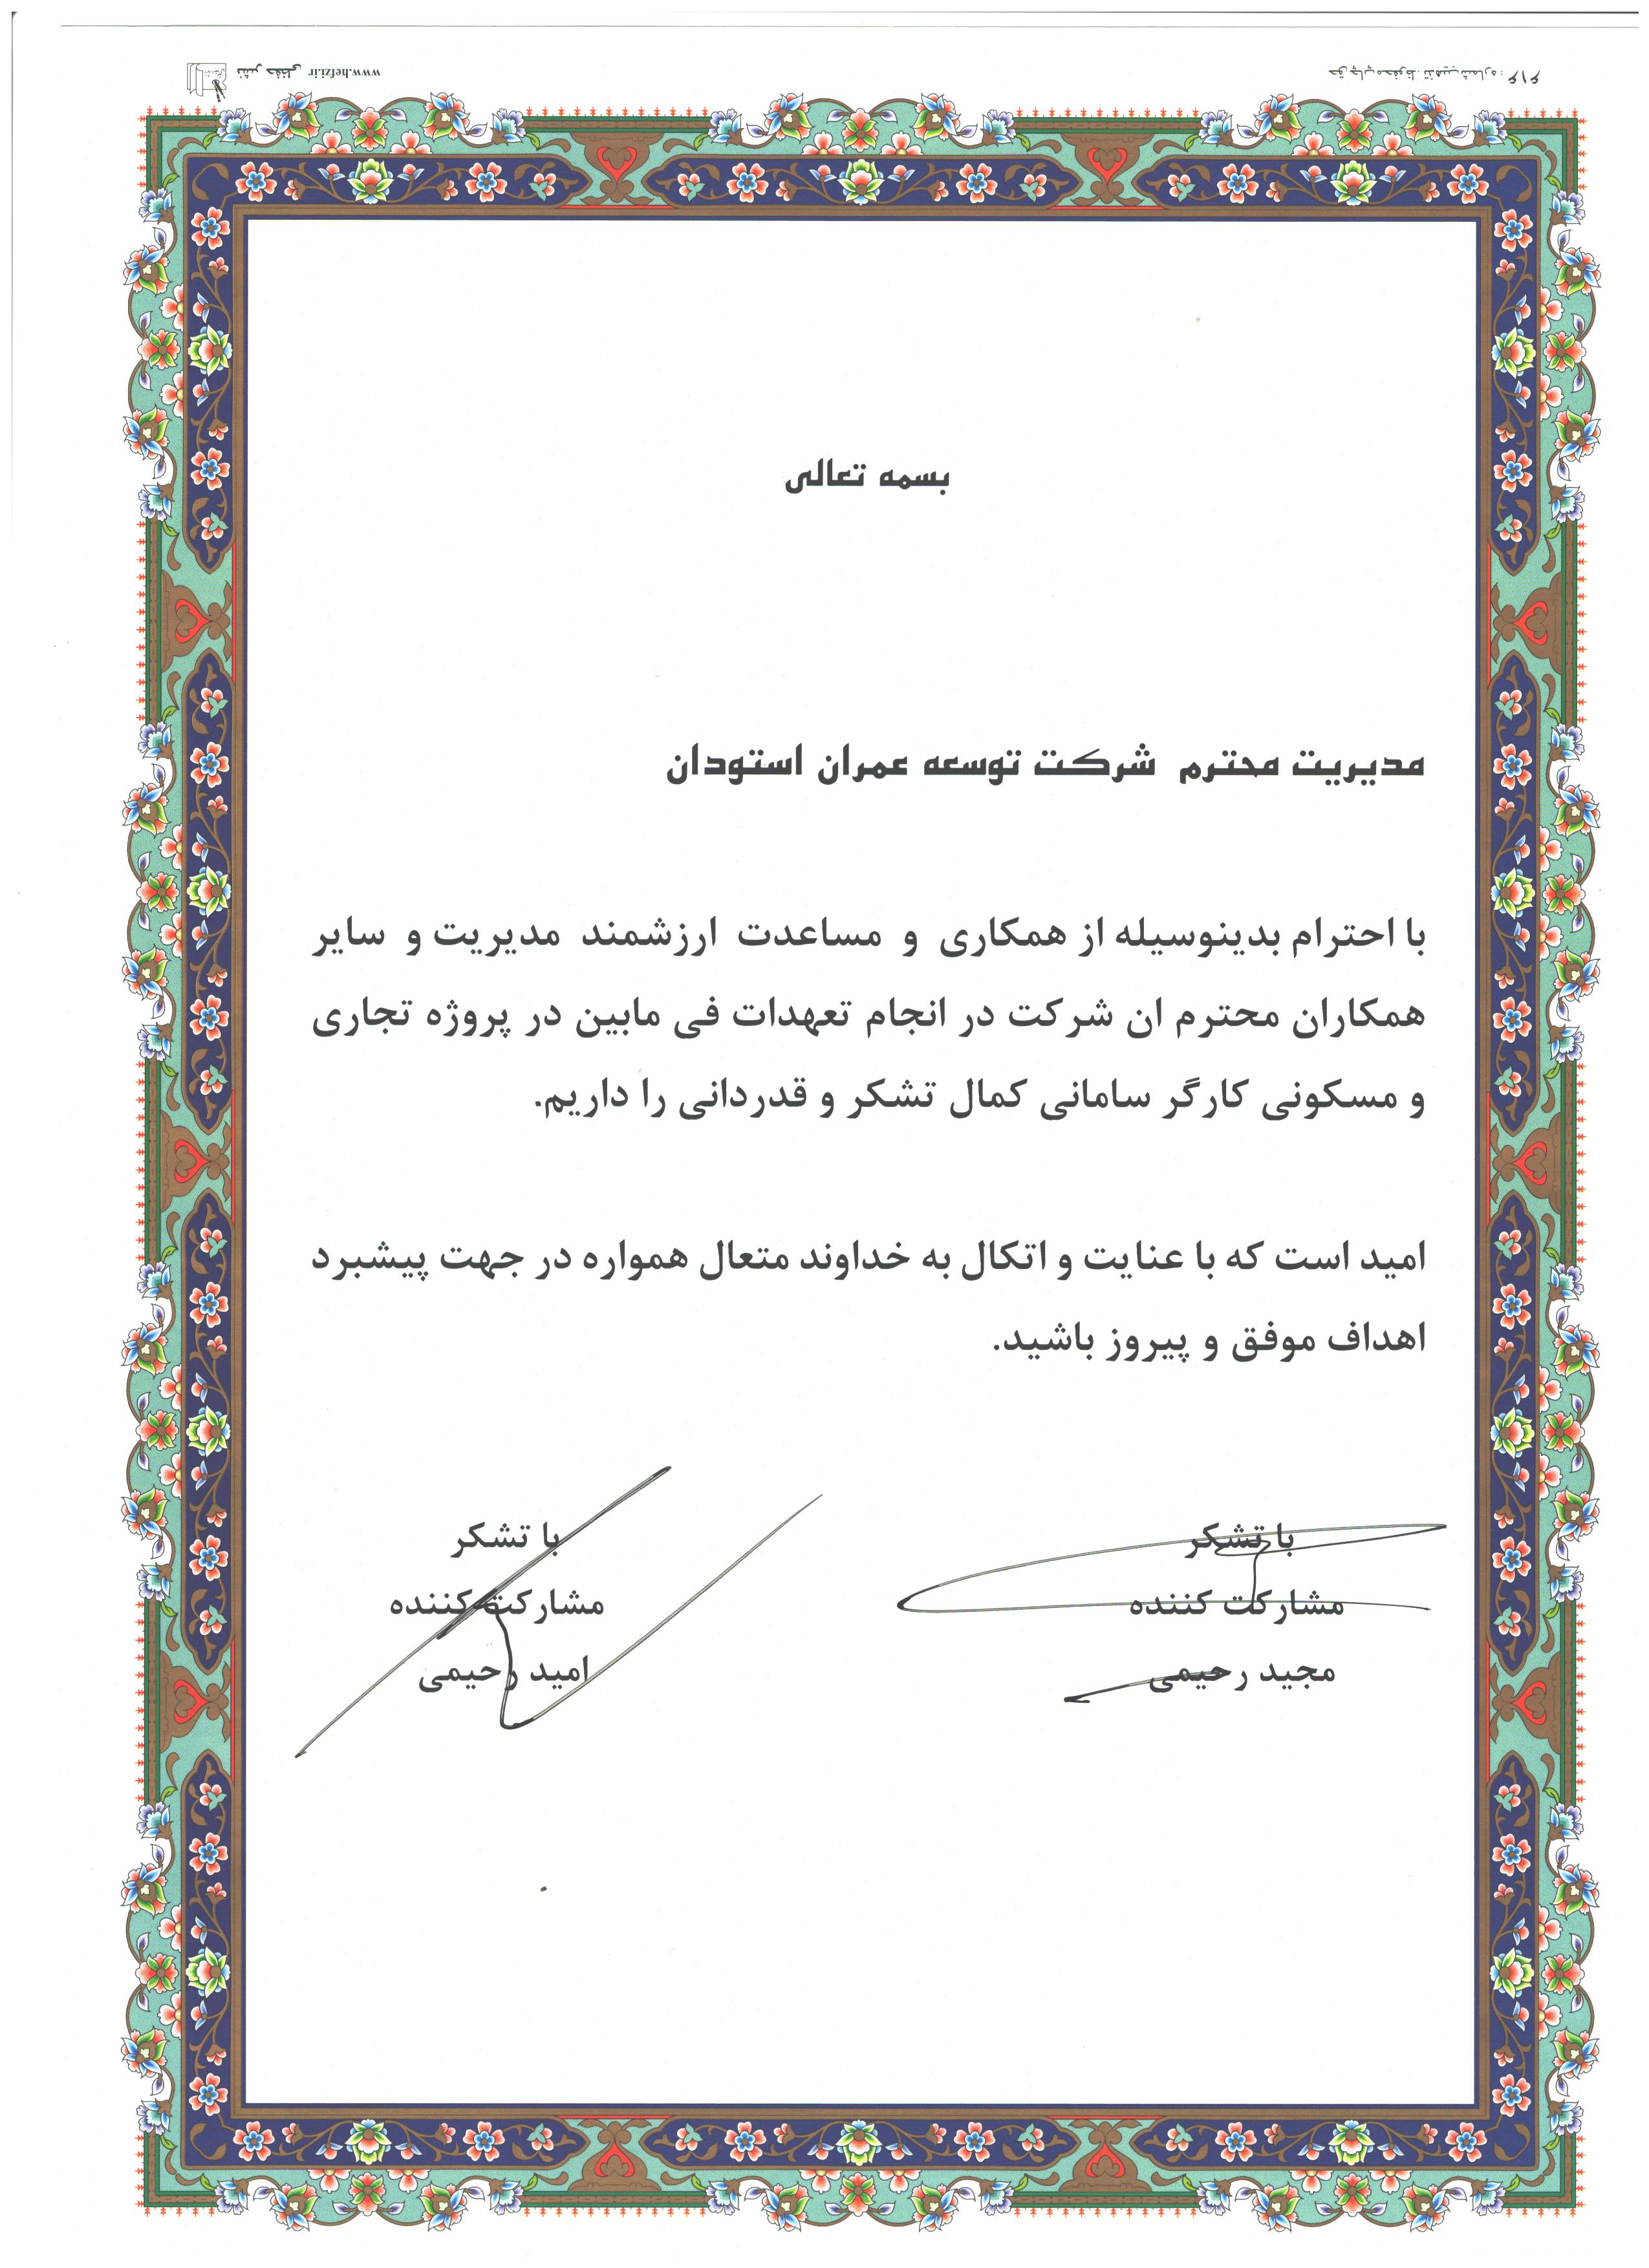 www.hefzi.ir نشر حفظی
حق چاپ محفوظ. تذهیب شماره: ۶۱۶
بسمه تعالی
مدیریت محترم شرکت توسعه عمران استودان
با احترام بدینوسیله از همکاری و مساعدت ارزشمند مدیریت و سایر
همکاران محترم ان شرکت در انجام تعهدات فی مابین در پروژه تجاری
و مسکونی کارگر سامانی کمال تشکر و قدردانی را داریم.
امید است که با عنایت و اتکال به خداوند متعال همواره در جهت پیشبرد
اهداف موفق و پیروز باشید.
با تشکر
مشارکت کننده
مجید رحیمی
با تشکر
مشارکت کننده
امید رحیمی